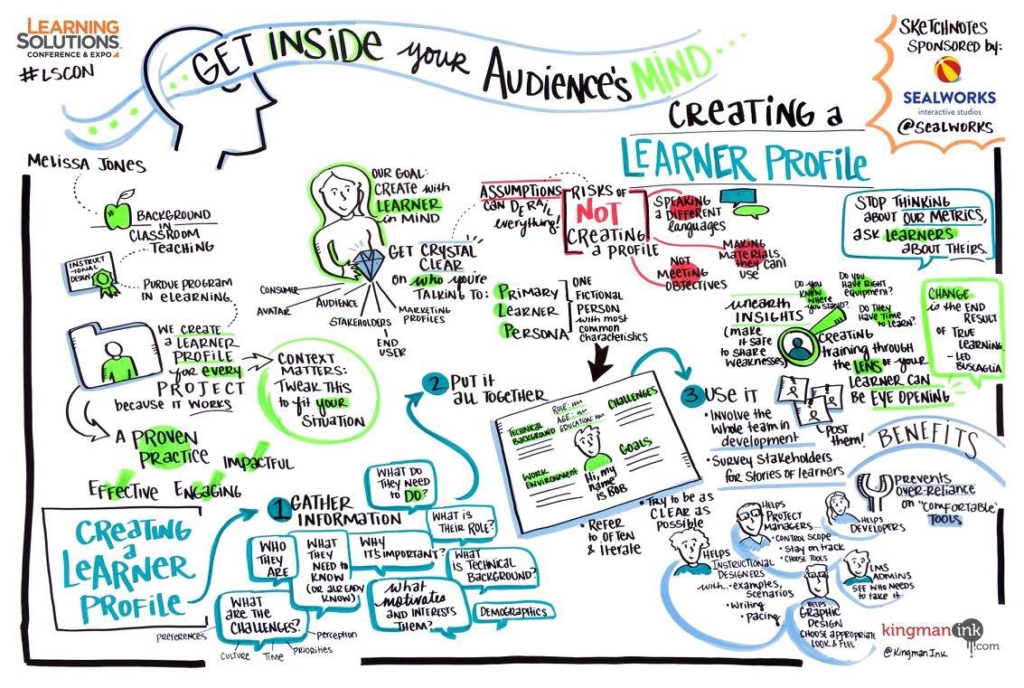 LEARNING
SOLUTIONS
CONFERENCE & EXPO
#LSCON
GET INSIDE your AUDIENCE'S MIND
CREATING a
LEARNER PROFILE
SKETCHNOTES
SPONSORED by:
SEALWORKS
interactive studios
@SEALWORKS
MELISSA JONES
BACKGROUND
IN
CLASSROOM
TEACHING
INSTRUCT
-IONAL
DESIGN
PURDUE PROGRAM
IN eLEARNING
WE CREATE
a LEARNER
PROFILE
for EVERY
PROJECT
because IT WORKS
A PROVEN
PRACTICE
EFFECTIVE
ENGAGING
IMPACTFUL
CONTEXT
MATTERS:
TWEAK THIS
to fit YOUR
SITUATION
OUR GOAL:
CREATE with
LEARNER
in MIND
GET CRYSTAL
CLEAR
on who you're
TALKING TO:
CONSUMER
AVATAR
AUDIENCE
STAKEHOLDERS
END
USER
MARKETING
PROFILES
ASSUMPTIONS
CAN DERAIL
everything!
RISKS OF
NOT
CREATING
a PROFILE
SPEAKING
A DIFFERENT
languages
MAKING
MATERIALS
they CAN'T
USE
NOT
MEETING
OBJECTIVES
PRIMARY
LEARNER
PERSONA
ONE
FICTIONAL
PERSON
with most
common
characteristics
STOP THINKING
ABOUT OUR METRICS,
ASK LEARNERS
ABOUT THEIRS.
unearth
INSIGHTS
(make
it safe
to share
weaknesses)
Do you
KNOW
where
you STAND?
Do you
HAVE RIGHT
equipment?
Do THEY
HAVE TIME
to LEARN?
CREATING
training through
the LENS of your
LEARNER CAN
BE EYE OPENING
CHANGE
is the END
RESULT
OF TRUE
LEARNING
- LEO
BUSCAGLIA
CREATING
a
LEARNER
PROFILE
1 GATHER
INFORMATION
WHO
THEY
ARE
WHAT
THEY
NEED to
KNOW
(OR ALREADY
KNOW)
WHY
IT'S IMPORTANT?
WHAT DO
THEY NEED
to DO?
WHAT IS
THEIR ROLE?
WHAT
IS TECHNICAL
BACKGROUND?
WHAT
motivates
AND INTERESTS
THEM?
DEMOGRAPHICS
WHAT
ARE THE
CHALLENGES?
PREFERENCES
CULTURE
TIME
PRIORITIES
perception
2 PUT it
all TOGETHER
TECHNICAL
BACKGROUND
ROLE:
AGE:
EDUCATION:
CHALLENGES
WORK
ENVIRONMENT
GOALS
Hi, my
name
is BOB
• REFER
to OFTEN
& Iterate
• TRY to be as
CLEAR as
possible
3 USE IT
• Involve the
Whole team in
development
• Survey Stakeholders
for Stories of learners
POST
them!
BENEFITS
PREVENTS
over-reliance
on "COMFORTABLE"
TOOLS
HELPS
PROJECT
MANAGERS
• CONTROL SCOPE
• Stay on track
• CHOOSE TOOLS
HELPS
DEVELOPERS
HELPS
INSTRUCTIONAL
DESIGNERS
with... • examples,
scenarios
• Writing
• pacing
LMS
ADMINS
SEE WHO NEEDS
to take it
HELPS
GRAPHIC
DESIGN
CHOOSE APPROPRIATE
LOOK & FEEL
kingmanink.com
@KingmanInk